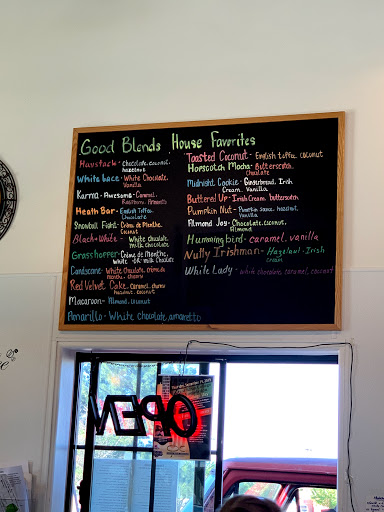 Good Blends House Favorites
Haystack - chocolate, coconut,
hazelnut
White Lace - White Chocolate,
Vanilla
Karma - Awesome - Caramel,
Heath Bar - English Toffee,
Chocolate
Snowball Fight - Crème de Menthe,
Coconut
Black + White - White chocolate,
milk chocolate
Grasshopper - Crème de Menthe,
White -OR- milk Chocolate
Candycane - White Chocolate, crème de
menthe, cherry
Red Velvet Cake - Caramel, cherry
hazelnut, coconut
Macaroon - Almond, coconut
Amarillo - White chocolate, amaretto
Toasted Coconut - English toffee, coconut
Hopscotch Mocha - Butterscotch,
Chocolate
Midnight Cookie - Gingerbread, Irish
Cream, Vanilla
Buttered Up - Irish Cream, butterscotch
Pumpkin Nut - Pumpkin sauce, hazelnut,
Vanilla
Almond Joy - Chocolate, coconut,
Almond
Hummingbird - caramel, vanilla
Nutty Irishman - Hazelnut - Irish
cream
White Lady - white chocolate, caramel, coconut
OPEN